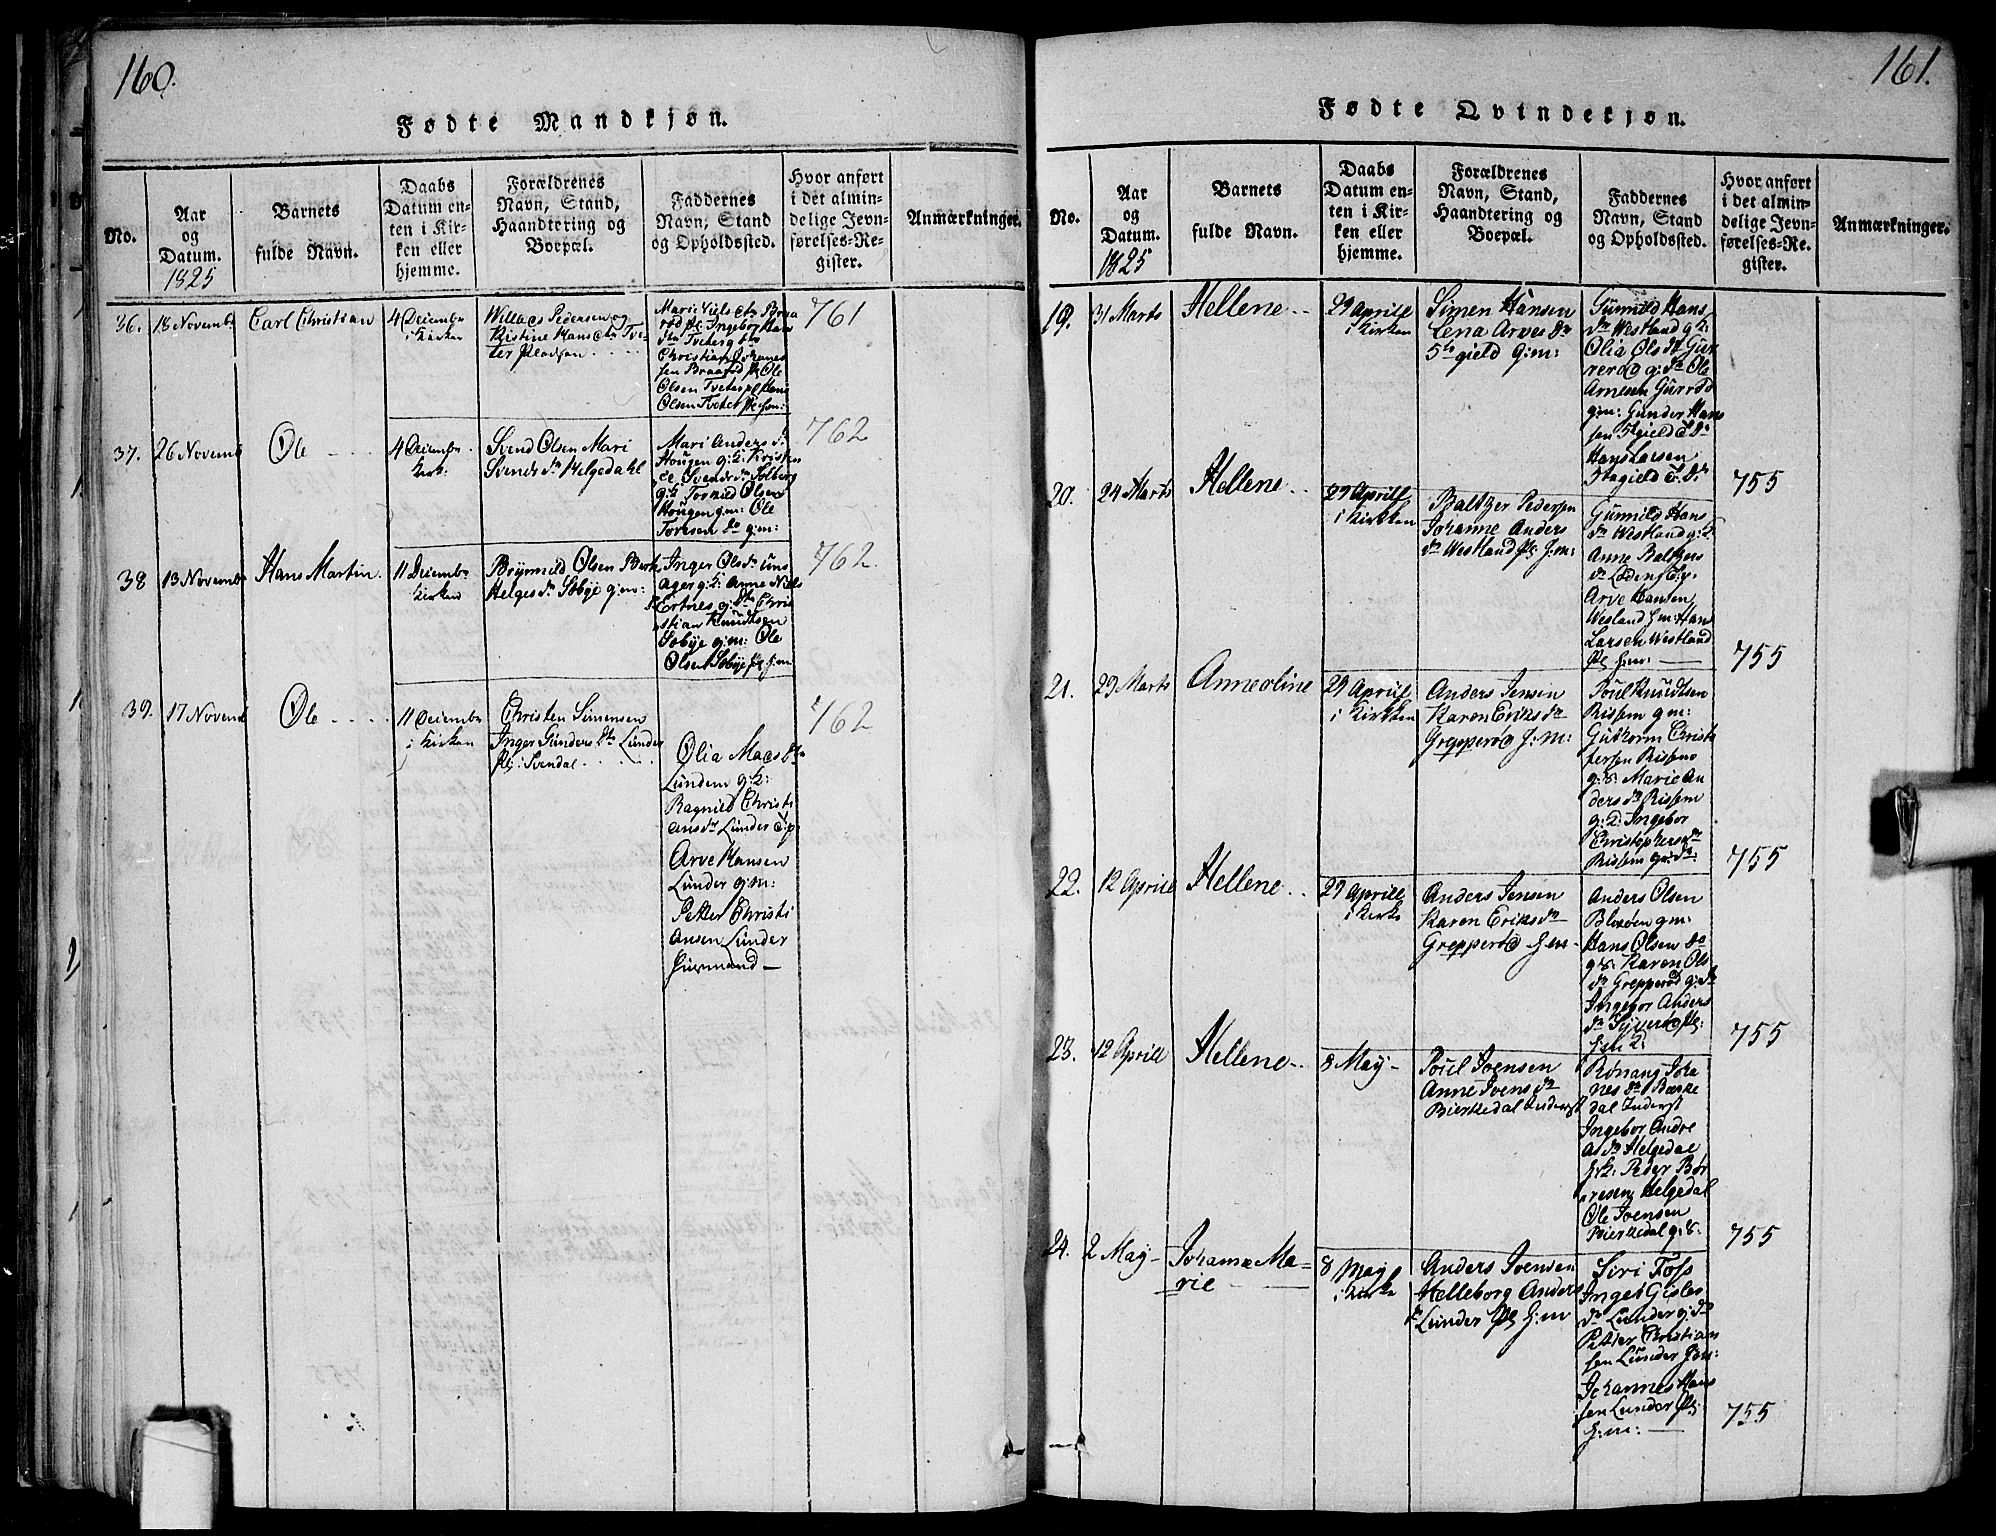 160.
Fødte Mandkjøn.
No.
Aar
og
Datum.
1825
Barnets
fulde Navn.
Daabs
Datum en-
ten i Kir-
ken eller
hjemme.
Forældrenes
Navn, Stand,
Haandtering og
Boepæl.
Faddernes
Navn, Stand
og Opholdssted.
Hvor anført
i det almin-
delige Jevn-
førelses-Re-
gister.
Anmærkninger.
36.
18 Novembr
Carl Christian
4 Decembr
i Kirken
Pedersen og
Kistine Hans dtr Tve-
ter Pladsen
Mari Niels dtr
Ingeborg Hans
dtr Tveter
Christian Johanes
sen Braarød pl Ole
Olsen Tveter pl Hans
Olsen Tveter
761
37.
26 Novemb
Ole
4 Decembr
Kirk.
Svend Olsen Mari
Svends dr Helgedahl
Mari Anders dr
Hougen g:k:
Svends dr Solberg
g:k: Torkild Olsen
Hougen g:m: Ole
Toresen do g:m:
762
38
13 Novembr
Hans Martin.
11 Decembr
Kirken
Brynnild Olsen
Helges dr Sobye g:m:
Inger Ols dr
Anne Niels
Ertnes g: dtr Chri
stian Knudtsen
Sobye g:m: Ole
Olsen Sobye pl h:m
762.
39.
17 Novemb
Ole
11 Decembr
i Kirken
Christen Simensen
Inger Gunders dtr Lunder
pl: Svendal
Olia Maes dtr
Lundem g:k:
Ragnild Christi
ans dr Lunder
Arve Hansen
Lunder g:m:
Petter Christi
ansen Lunder
762
161.
Fødte Qvindekjøn.
No.
Aar
og
Datum.
1825
Barnets
fulde Navn.
Daabs
Datum en-
ten i Kir-
ken eller
hjemme.
Forældrenes
Navn, Stand,
Haandtering og
Boepæl.
Faddernes
Navn, Stand
og Opholdssted.
Hvor anført
i det almin-
delige Jevn-
førelses-Re-
gister.
Anmærkninger.
19.
31 Marts
Hellene
29 Aprill
i Kirken
Simen Hansen
Lena Arves dr
gield g:m:
Gunnild Hans
dr Westland g:k:
Olia Ols dr Gur
rerød g: dr Ole
Arnesen Gurrød
g:m: Gunder Hans
sen
Hans Larsen
755
20.
24 Marts
Hellene
29 Aprill
i Kirken
Baltzer Pedersen
Johanne Anders
dr Westland pl: h:m:
Gunnild Hans
dr Westland g:k:
Anne Baltzers
dr
Arve Hansen
Wesland h:m: Hans
Larsen Westland
pl h:m:
755
21.
29 Marts
Anneoline
29 Aprill
i Kirken
Anders Jensen
Karen Eriks dr
Grepperød h:m:
Poul Knudtsen
Rissem g:m:
Guthorm Christo
fersen Rissem
Marie An
ders dr Rissem
g:k: Ingebor
Christophers dr
Rissem g: dr:
755
22.
12 Aprill
Hellene
29 Aprill
i Kirke
Anders Jensen
Karen Eriks dr
Grepperød h:m
Anders Olsen
g:m:
Hans Olsen do
Karen Ols
dr Grepperød g: dr
Ingebor Anders
755
23.
12 Aprill
Hellene
8 May
Poul Joensen
Anne Joens dr
Bierkedal Inderst
Rønang Joha
nes dr Bærke
dal Inderst
Ingebor Andre
as dr Helgedal
Peder Bør
resen Helgedal
Ole Joensen
Bierkedal
755
24.
2 May
Johanne Ma-
rie
8 May
i Kirke
Anders Joensen
Helleborg Anders
dr Lunder pl: h:m
Siri Foss
Inger Gisles
dr Lunder g: dr
Petter Christian
sen Lunder
Johannes Hans
sen Lunder pl:
h:m:
755